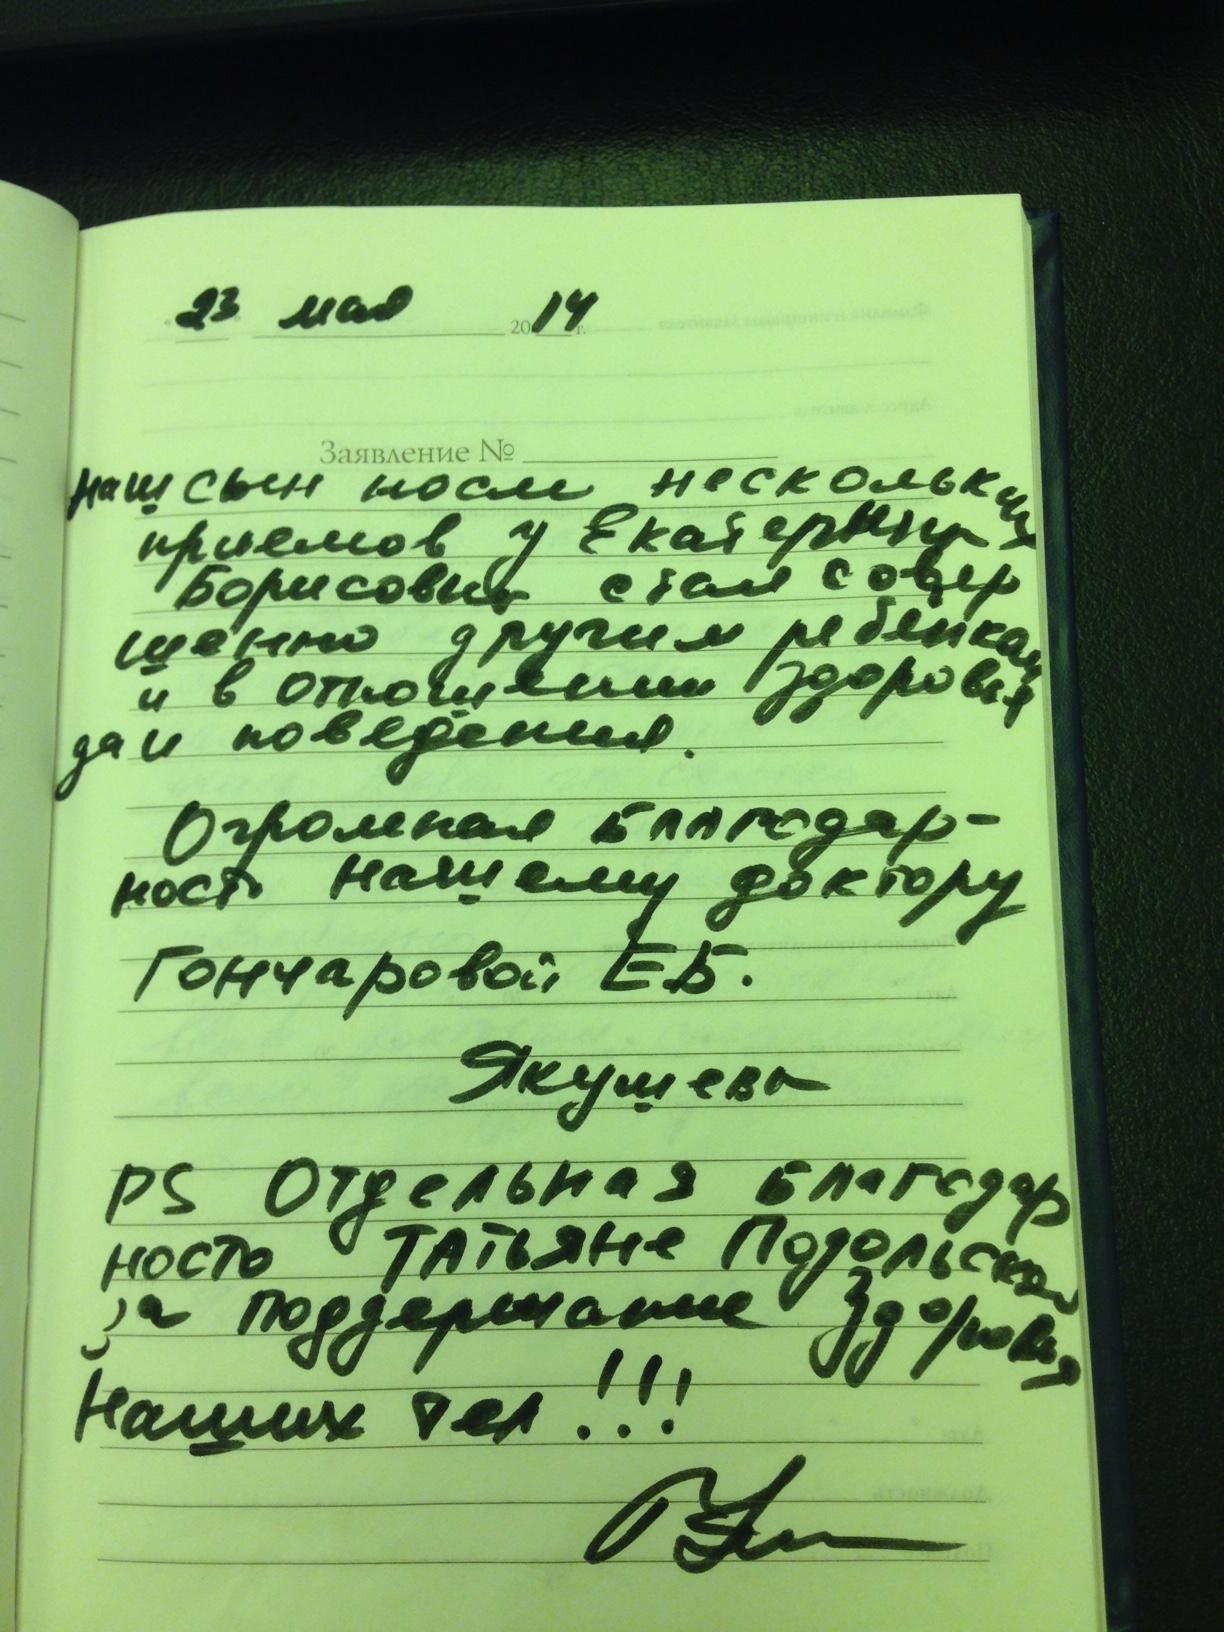 23 мая 2014 г.
Заявление №
Наш сын после нескольких
приемов у Екатерины
Борисовны стал совер
шенно другим ребенком
и в отношении здоровья
да и поведения.
Огромная благодар-
ность нашему доктору
Гончаровой Е.Б.
Якушевы
PS Отдельная благодар
ность Татьяне Подольской
за поддержание здоровья
Наших тел!!!